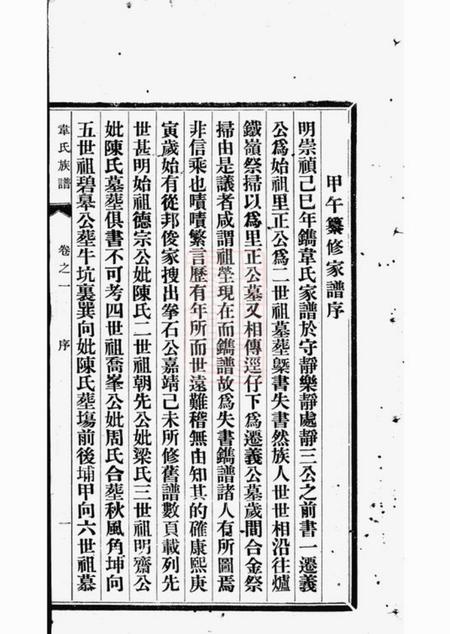 甲午纂修家譜序
明崇禎己巳年鐫韋氏家譜於守靜樂靜處靜三公之前書一遷義
公爲始祖里正公爲二世祖墓葬槩書失書然族人世世相沿往爐
鐵嶺祭掃以爲里正公墓又相傳逕仔下爲遷義公墓歲間合金祭
掃由是議者咸謂祖塋現在而鐫譜故爲失書鐫譜諸人有所圖焉
非信乘也嘖嘖繁言歷有年所而世遠難稽無由知其的確康熙庚
寅歲始有從邦俊家搜出拳石公嘉靖己未所修舊譜數頁載列先
世甚明始祖德宗公妣陳氏二世祖朝先公妣梁氏三世祖明齋公
妣陳氏墓葬俱書不可考四世祖喬峯公妣周氏合葬秋風角坤向
五世祖碧皋公葬牛坑裏巽向妣陳氏葬塲前後埔甲向六世祖慕
韋氏族譜
卷之一
序
一